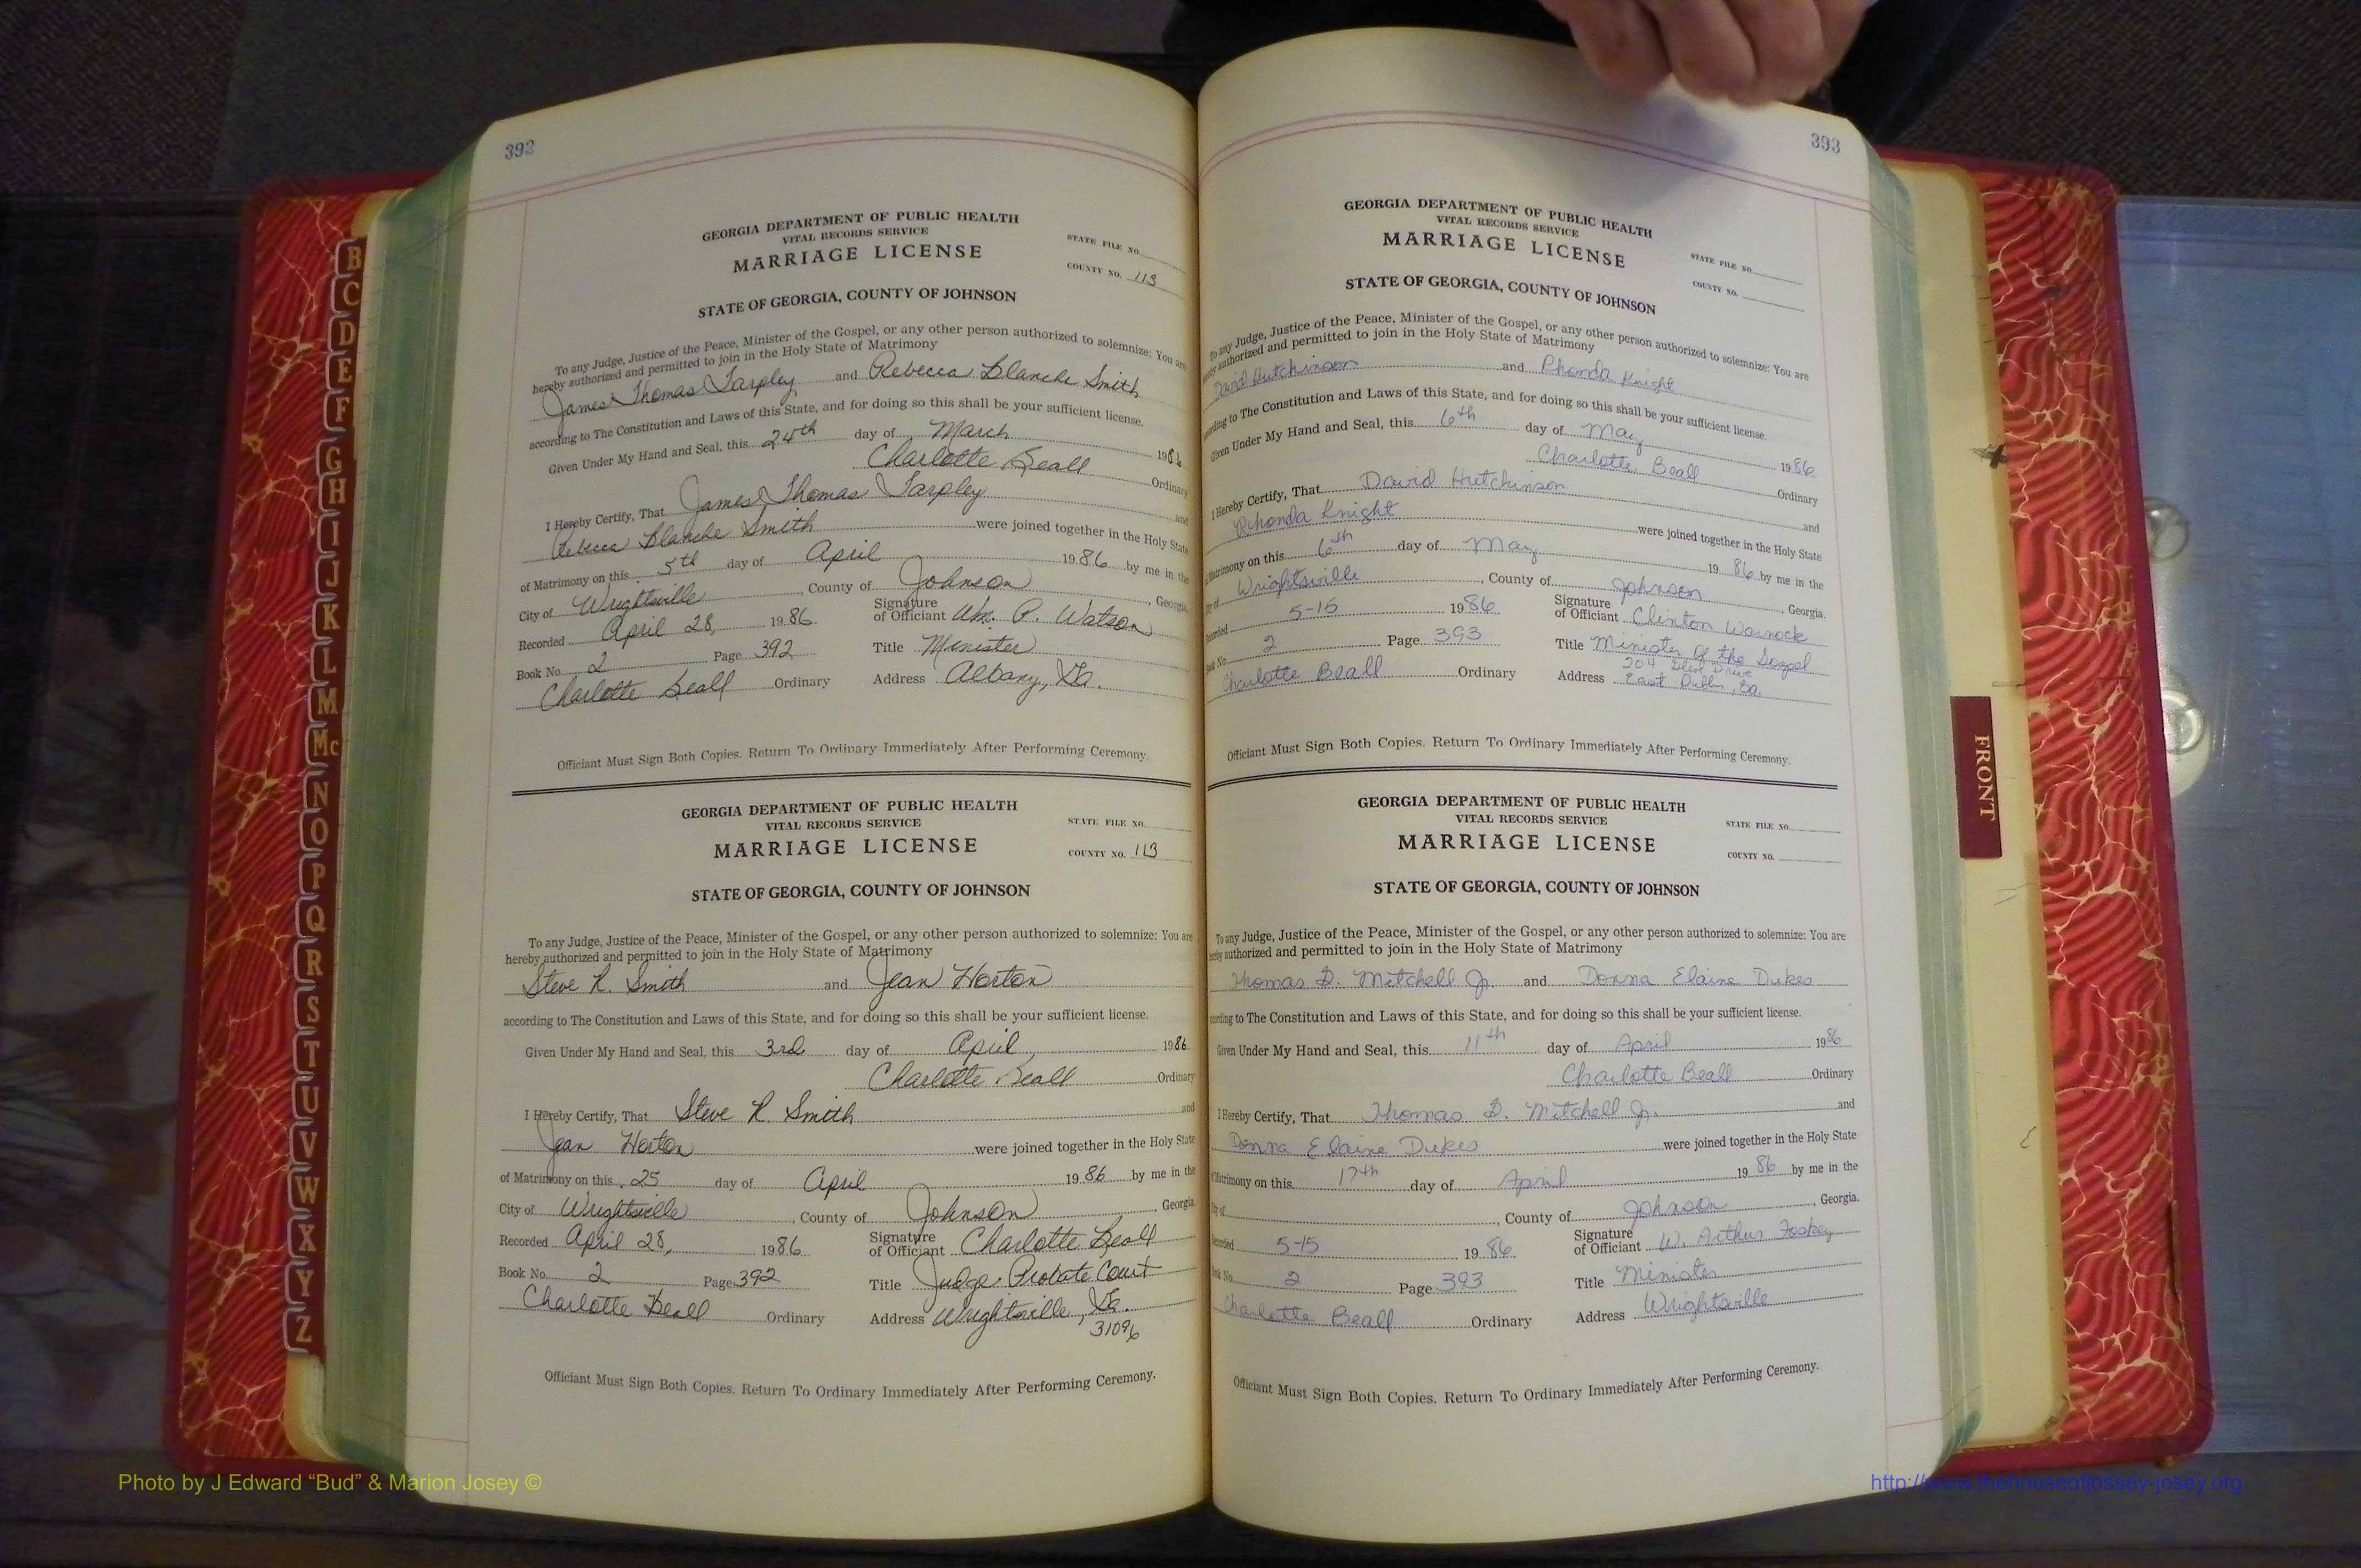 392
GEORGIA DEPARTMENT OF PUBLIC HEALTH
VITAL RECORDS SERVICE
MARRIAGE LICENSE
STATE FILE NO.
COUNTY NO. 113
STATE OF GEORGIA, COUNTY OF JOHNSON
To any Judge, Justice of the Peace, Minister of the Gospel, or any other person authorized to solemnize: You are
hereby authorized and permitted to join in the Holy State of Matrimony
James Thomas Tarpley and Rebecca Blanche Smith
according to The Constitution and Laws of this State, and for doing so this shall be your sufficient license.
Given Under My Hand and Seal, this 24th day of March 1986
Charlotte Beall Ordinary
I Hereby Certify, That James Thomas Tarpley and
Rebecca Blanche Smith were joined together in the Holy State
of Matrimony on this 5th day of April 1986 by me in the
City of Wrightsville, County of Johnson, Georgia.
Recorded April 28, 1986 Signature of Officiant Wm. P. Watson
Book No. 2 Page 392 Title Minister
Charlotte Beall Ordinary Address Albany, Ga.
Officiant Must Sign Both Copies. Return To Ordinary Immediately After Performing Ceremony.
GEORGIA DEPARTMENT OF PUBLIC HEALTH
VITAL RECORDS SERVICE
MARRIAGE LICENSE
STATE FILE NO.
COUNTY NO. 113
STATE OF GEORGIA, COUNTY OF JOHNSON
To any Judge, Justice of the Peace, Minister of the Gospel, or any other person authorized to solemnize: You are
hereby authorized and permitted to join in the Holy State of Matrimony
Steve R. Smith and Jean Horton
according to The Constitution and Laws of this State, and for doing so this shall be your sufficient license.
Given Under My Hand and Seal, this 3rd day of April, 1986
Charlotte Beall Ordinary
I Hereby Certify, That Steve R. Smith and
Jean Horton were joined together in the Holy State
of Matrimony on this 25 day of April 1986 by me in the
City of Wrightsville, County of Johnson, Georgia.
Recorded April 28, 1986 Signature of Officiant Charlotte Beall
Book No. 2 Page 392 Title Judge: Probate Court
Charlotte Beall Ordinary Address Wrightsville, Ga.
31096
Officiant Must Sign Both Copies. Return To Ordinary Immediately After Performing Ceremony.
393
GEORGIA DEPARTMENT OF PUBLIC HEALTH
VITAL RECORDS SERVICE
MARRIAGE LICENSE
STATE FILE NO.
COUNTY NO.
STATE OF GEORGIA, COUNTY OF JOHNSON
To any Judge, Justice of the Peace, Minister of the Gospel, or any other person authorized to solemnize: You are
hereby authorized and permitted to join in the Holy State of Matrimony
David Hutchinson and Rhonda Knight
according to The Constitution and Laws of this State, and for doing so this shall be your sufficient license.
Given Under My Hand and Seal, this 6th day of May 1986
Charlotte Beall Ordinary
I Hereby Certify, That David Hutchinson and
Rhonda Knight were joined together in the Holy State
of Matrimony on this 6th day of May 1986 by me in the
City of Wrightsville, County of Johnson, Georgia.
Recorded 5-15 1986 Signature of Officiant Clinton Warnock
Book No. 2 Page 393 Title Minister of the Gospel
204 Drive
Charlotte Beall Ordinary Address East Dublin, Ga.
Officiant Must Sign Both Copies. Return To Ordinary Immediately After Performing Ceremony.
GEORGIA DEPARTMENT OF PUBLIC HEALTH
VITAL RECORDS SERVICE
MARRIAGE LICENSE
STATE FILE NO.
COUNTY NO.
STATE OF GEORGIA, COUNTY OF JOHNSON
To any Judge, Justice of the Peace, Minister of the Gospel, or any other person authorized to solemnize: You are
hereby authorized and permitted to join in the Holy State of Matrimony
Thomas D. Mitchell Jr. and Donna Elaine Dukes
according to The Constitution and Laws of this State, and for doing so this shall be your sufficient license.
Given Under My Hand and Seal, this 11th day of April 1986
Charlotte Beall Ordinary
I Hereby Certify, That Thomas D. Mitchell Jr. and
Donna Elaine Dukes were joined together in the Holy State
of Matrimony on this 17th day of April 1986 by me in the
City of, County of Johnson, Georgia.
Recorded 5-15 1986 Signature of Officiant W. Arthur Foskey
Book No. 2 Page 393 Title Minister
Charlotte Beall Ordinary Address Wrightsville
Officiant Must Sign Both Copies. Return To Ordinary Immediately After Performing Ceremony.
B
C
D
E
F
G
H
I
J
K
L
M
Mc
N
O
P
Q
R
S
T
U
V
W
X
Y
Z
FRONT
Photo by J Edward “Bud” & Marion Josey ©
http://www.thehouseofjossey-josey.org